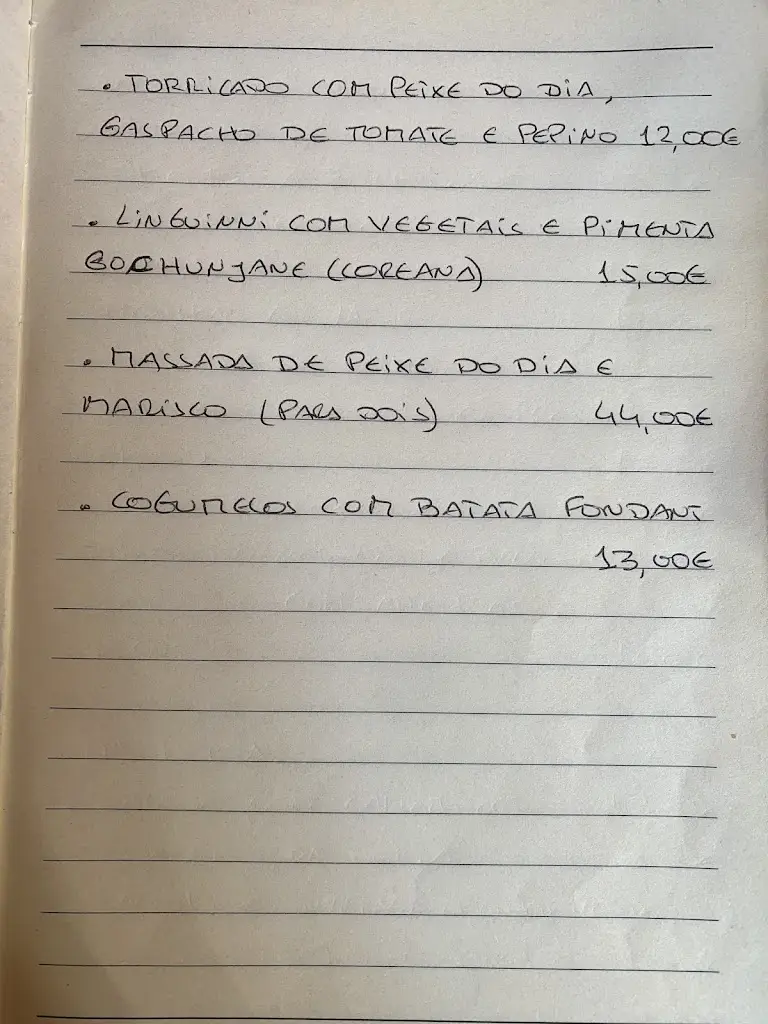 . TORRICADO COM PEIXE DO DIA,
GASPACHO DE TOMATE E PEPINO 12,00€
. LINGUINNI COM VEGETAIS E PIMENTA
GOCHUNJANE (COREANA) 15,00€
. MASSADA DE PEIXE DO DIA E
MARISCO (PARA DOIS) 44,00€
. COGUMELOS COM BATATA FONDANT
13,00€